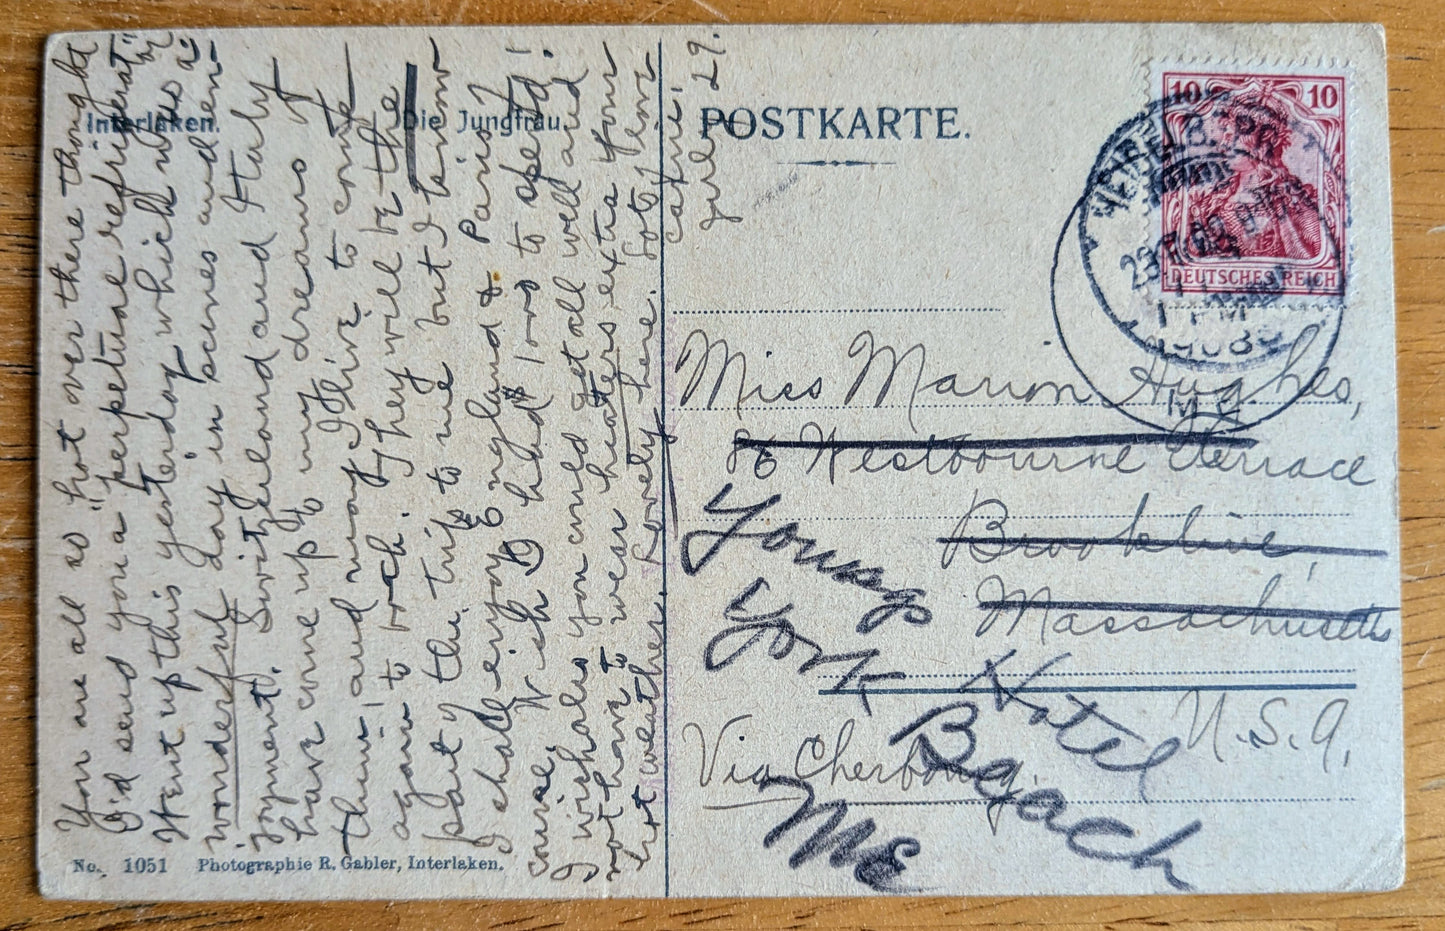 Interlaken.
Die Jungfrau.
POSTKARTE.
10 10
DEUTSCHES REICH
HEIDELBERG
You are all so "hot over there thought
I'd send you a perpetual refrigerator"
Went up this yesterday which was a
wonderful day in scenes and en-
joyment. Switzerland and Italy
have come up to my dreams of
them, and may I live to come
again to each. They will be the
part of the trip to me but I know
I shall enjoy England & Paris of
course. Wish I had $100 to spend!
I wish you could get all well and
not have to wear heaters extra your
hot weather. Lovely here. Lots love
Catrie.
July 29.
Miss Marion Hughes,
86 Westbourne Terrace
Brookline,
Massachusetts
U.S.A.
Via Cherbourg.
Youngs
Hotel
York Beach
ME
No. 1051 Photographie R. Gabler, Interlaken.